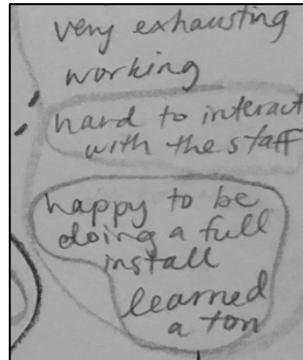 very exhausting
working
hard to interact
with the staff
happy to be
doing a full
install
learned
a ton